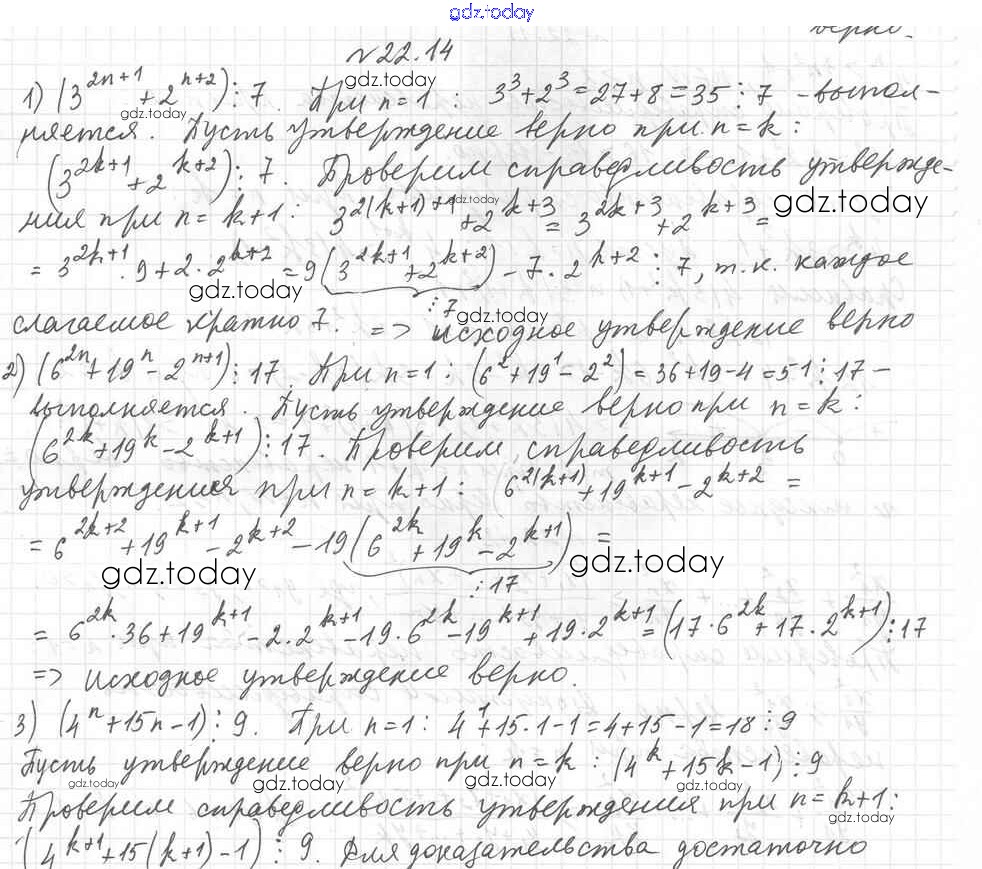 gdz.today
верно.
№22.14
1) (3^{2n+1} + 2^{n+2}) ⋮ 7. При n=1 : 3^3+2^3=27+8=35 ⋮ 7 - выпол-
няется. Пусть утверждение верно при n=k :
(3^{2k+1} + 2^{k+2}) ⋮ 7. Проверим справедливость утвержде-
ния при n=k+1 : 3^{2(k+1)+1} + 2^{k+3} = 3^{2k+3} + 2^{k+3} =
= 3^{2k+1} · 9 + 2 · 2^{k+2} = 9(3^{2k+1} + 2^{k+2}) - 7 · 2^{k+2} ⋮ 7, т.к. каждое
⋮ 7
слагаемое кратно 7. => исходное утверждение верно
2) (6^{2n} + 19^n - 2^{n+1}) ⋮ 17. При n=1 : (6^2 + 19^1 - 2^2) = 36+19-4=51 ⋮ 17 -
выполняется. Пусть утверждение верно при n=k :
(6^{2k} + 19^k - 2^{k+1}) ⋮ 17. Проверим справедливость
утверждения при n=k+1 : 6^{2(k+1)} + 19^{k+1} - 2^{k+2} =
= 6^{2k+2} + 19^{k+1} - 2^{k+2} - 19(6^{2k} + 19^k - 2^{k+1}) =
⋮ 17
= 6^{2k} · 36 + 19^{k+1} - 2 · 2^{k+1} - 19 · 6^{2k} - 19^{k+1} + 19 · 2^{k+1} = (17 · 6^{2k} + 17 · 2^{k+1}) ⋮ 17
=> исходное утверждение верно.
3) (4^n + 15n - 1) ⋮ 9. При n=1 : 4^1 + 15·1 - 1 = 4+15-1=18 ⋮ 9
Пусть утверждение верно при n=k : (4^k + 15k - 1) ⋮ 9
Проверим справедливость утверждения при n=k+1 :
(4^{k+1} + 15(k+1) - 1) ⋮ 9. Для доказательства достаточно